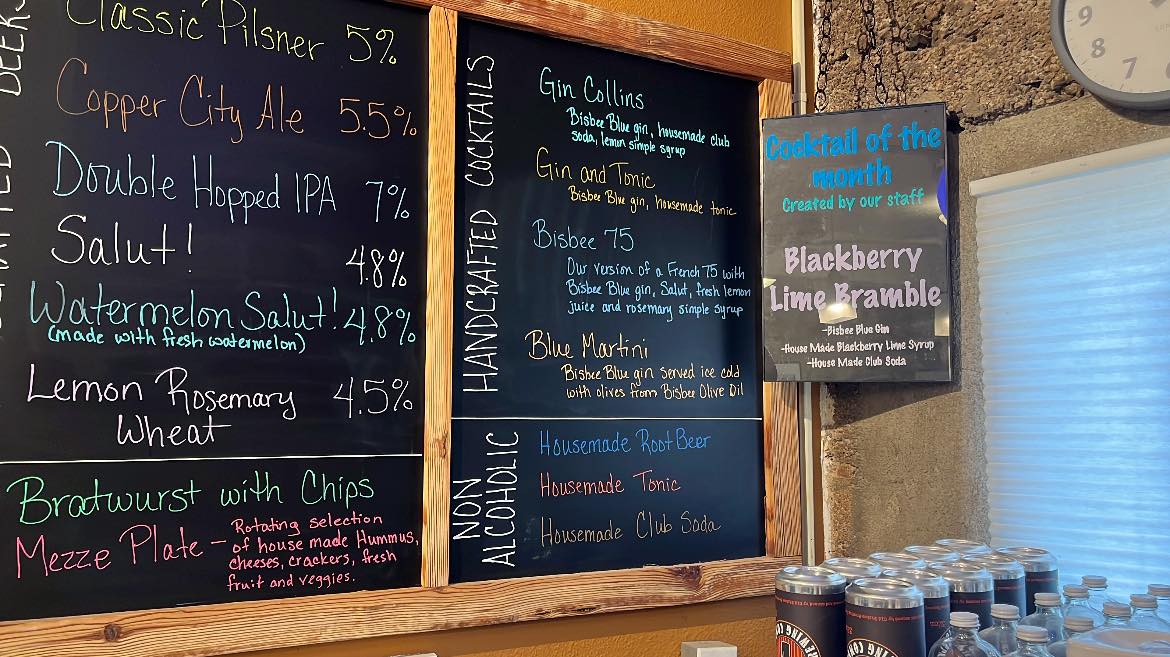 Classic Pilsner 5%
Copper City Ale 5.5%
Double Hopped IPA 7%
Salut! 4.8%
Watermelon Salut! 4.8%
(made with fresh watermelon)
Lemon Rosemary 4.5%
Wheat
Bratwurst with Chips
Mezze Plate - Rotating selection
of house made Hummus,
cheeses, crackers, fresh
fruit and veggies.
HANDCRAFTED COCKTAILS
Gin Collins
Bisbee Blue gin, housemade club
soda, lemon simple syrup
Gin and Tonic
Bisbee Blue gin, housemade tonic
Bisbee 75
Our version of a French 75 with
Bisbee Blue gin, Salut, fresh lemon
juice and rosemary simple syrup
Blue Martini
Bisbee Blue gin served ice cold
with olives from Bisbee Olive Oil
NON
ALCOHOLIC
Housemade Root Beer
Housemade Tonic
Housemade Club Soda
Cocktail of the
month
Created by our staff
Blackberry
Lime Bramble
-Bisbee Blue Gin
-House Made Blackberry Lime Syrup
-House Made Club Soda
9
8
7